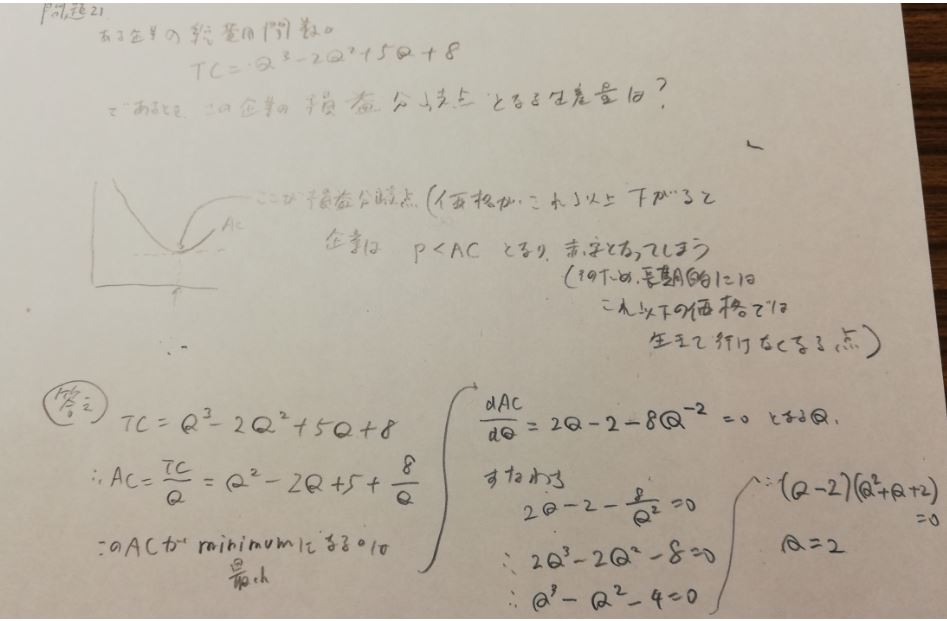 問題21
ある企業の総費用関数。
TC = Q³ - 2Q² + 5Q + 8
であるとき、この企業の損益分岐点となる生産量は?
ここが損益分岐点 (価格がこれ以上下がると
AC
企業は P<AC となり、赤字となってしまう
(そのため、長期的には
これ以下の価格では
生きて行けなくなる点)
答え
TC = Q³ - 2Q² + 5Q + 8
∴ AC = TC/Q = Q² - 2Q + 5 + 8/Q
このACが minimumになるのは
最小
dAC/dQ = 2Q - 2 - 8Q⁻² = 0 となるQ.
すなわち
2Q - 2 - 8/Q² = 0
∴ 2Q³ - 2Q² - 8 = 0
∴ Q³ - Q² - 4 = 0
∴ (Q-2)(Q²+Q+2)
=0
Q = 2